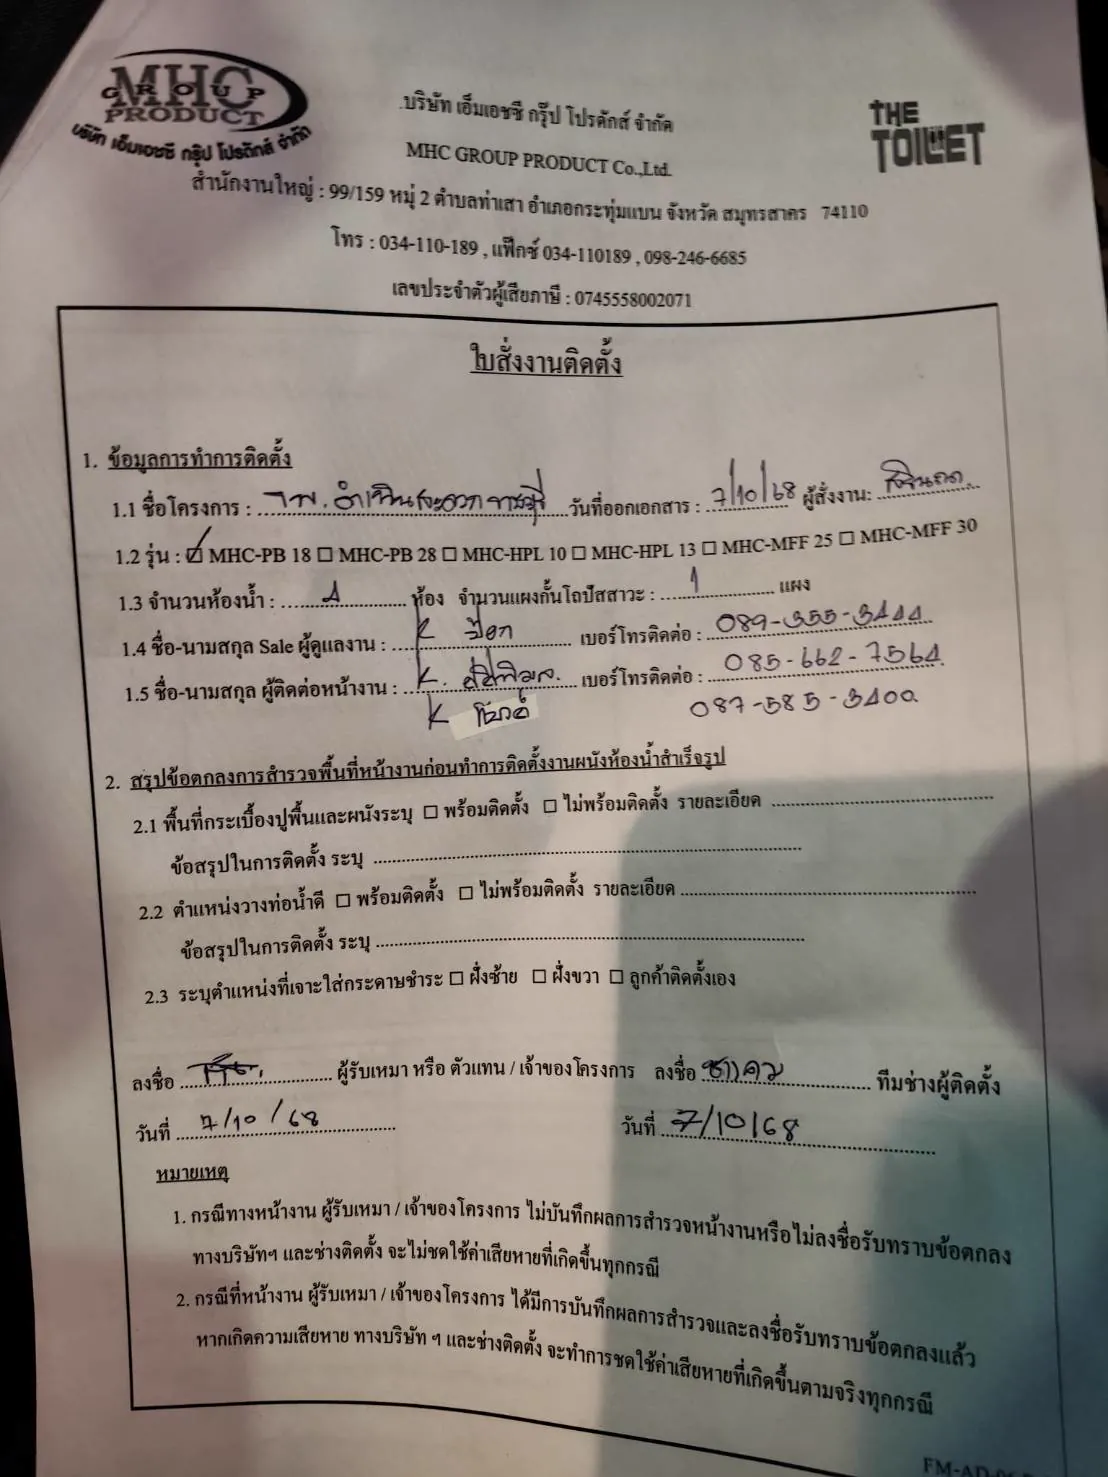 MHC
GROUP
PRODUCT
บริษัท เอ็มเอชซี กรุ๊ป โปรดักส์ จำกัด
บริษัท เอ็มเอชซี กรุ๊ป โปรดักส์ จำกัด
THE
TOILET
MHC GROUP PRODUCT Co.,Ltd.
สำนักงานใหญ่ : 99/159 หมู่ 2 ตำบลท่าเสา อำเภอกระทุ่มแบน จังหวัด สมุทรสาคร 74110
โทร : 034-110-189 , แฟ๊กซ์ 034-110189 , 098-246-6685
เลขประจำตัวผู้เสียภาษี : 0745558002071
ใบสั่งงานติดตั้ง
1. ข้อมูลการทำการติดตั้ง
1.1 ชื่อโครงการ : รพ. วันที่ออกเอกสาร : 7/10/68 ผู้สั่งงาน:
1.2 รุ่น : ☑ MHC-PB 18 ☐ MHC-PB 28 ☐ MHC-HPL 10 ☐ MHC-HPL 13 ☐ MHC-MFF 25 ☐ MHC-MFF 30
1.3 จำนวนห้องน้ำ : ห้อง จำนวนแผงกั้นโถปัสสาวะ : 1 แผง
1.4 ชื่อ-นามสกุล Sale ผู้ดูแลงาน : K เบอร์โทรติดต่อ : 089-355-3444
1.5 ชื่อ-นามสกุล ผู้ติดต่อหน้างาน : K. เบอร์โทรติดต่อ : 085-662-7564
K 087-585-3400
2. สรุปข้อตกลงการสำรวจพื้นที่หน้างานก่อนทำการติดตั้งงานผนังห้องน้ำสำเร็จรูป
2.1 พื้นที่กระเบื้องปูพื้นและผนังระบุ ☐ พร้อมติดตั้ง ☐ ไม่พร้อมติดตั้ง รายละเอียด
ข้อสรุปในการติดตั้ง ระบุ
2.2 ตำแหน่งวางท่อน้ำดี ☐ พร้อมติดตั้ง ☐ ไม่พร้อมติดตั้ง รายละเอียด
ข้อสรุปในการติดตั้ง ระบุ
2.3 ระบุตำแหน่งที่เจาะใส่กระดาษชำระ ☐ ฝั่งซ้าย ☐ ฝั่งขวา ☐ ลูกค้าติดตั้งเอง
ลงชื่อ ผู้รับเหมา หรือ ตัวแทน / เจ้าของโครงการ ลงชื่อ ทีมช่างผู้ติดตั้ง
วันที่ 7/10/68 วันที่ 7/10/68
หมายเหตุ
1. กรณีทางหน้างาน ผู้รับเหมา / เจ้าของโครงการ ไม่บันทึกผลการสำรวจหน้างานหรือไม่ลงชื่อรับทราบข้อตกลง
ทางบริษัทฯ และช่างติดตั้ง จะไม่ชดใช้ค่าเสียหายที่เกิดขึ้นทุกกรณี
2. กรณีที่หน้างาน ผู้รับเหมา / เจ้าของโครงการ ได้มีการบันทึกผลการสำรวจและลงชื่อรับทราบข้อตกลงแล้ว
หากเกิดความเสียหาย ทางบริษัท ฯ และช่างติดตั้ง จะทำการชดใช้ค่าเสียหายที่เกิดขึ้นตามจริงทุกกรณี